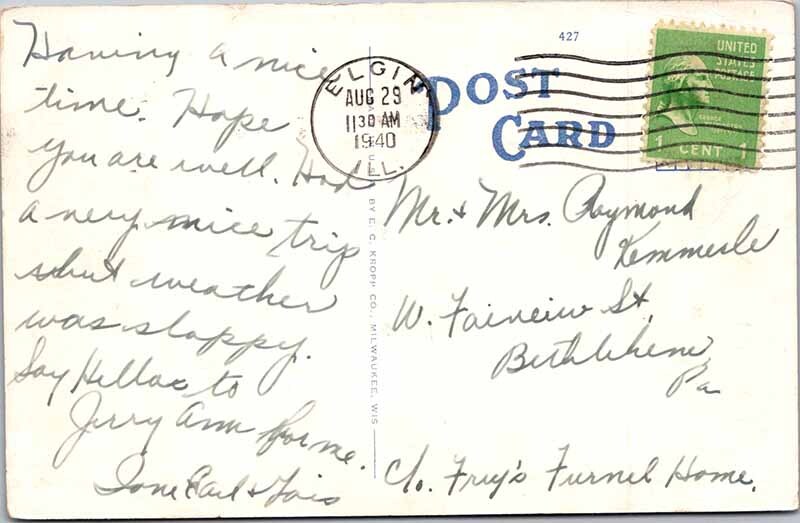 Having a nice
time. Hope
you are well. Had
a very nice trip
but weather
was sloppy.
Say Helloo to
Jerry Ann for me.
Earl & Lois
427
POST
CARD
ELGIN
AUG 29
11 30 AM
1940
ILL.
UNITED
STATES
POSTAGE
1 CENT 1
BY E. C. KROPP CO., MILWAUKEE, WIS
Mr. & Mrs. Raymond
Kemmerle
W. Faineiw St.
Bethlehem
Pa
c/o. Frey's Furnel Home.